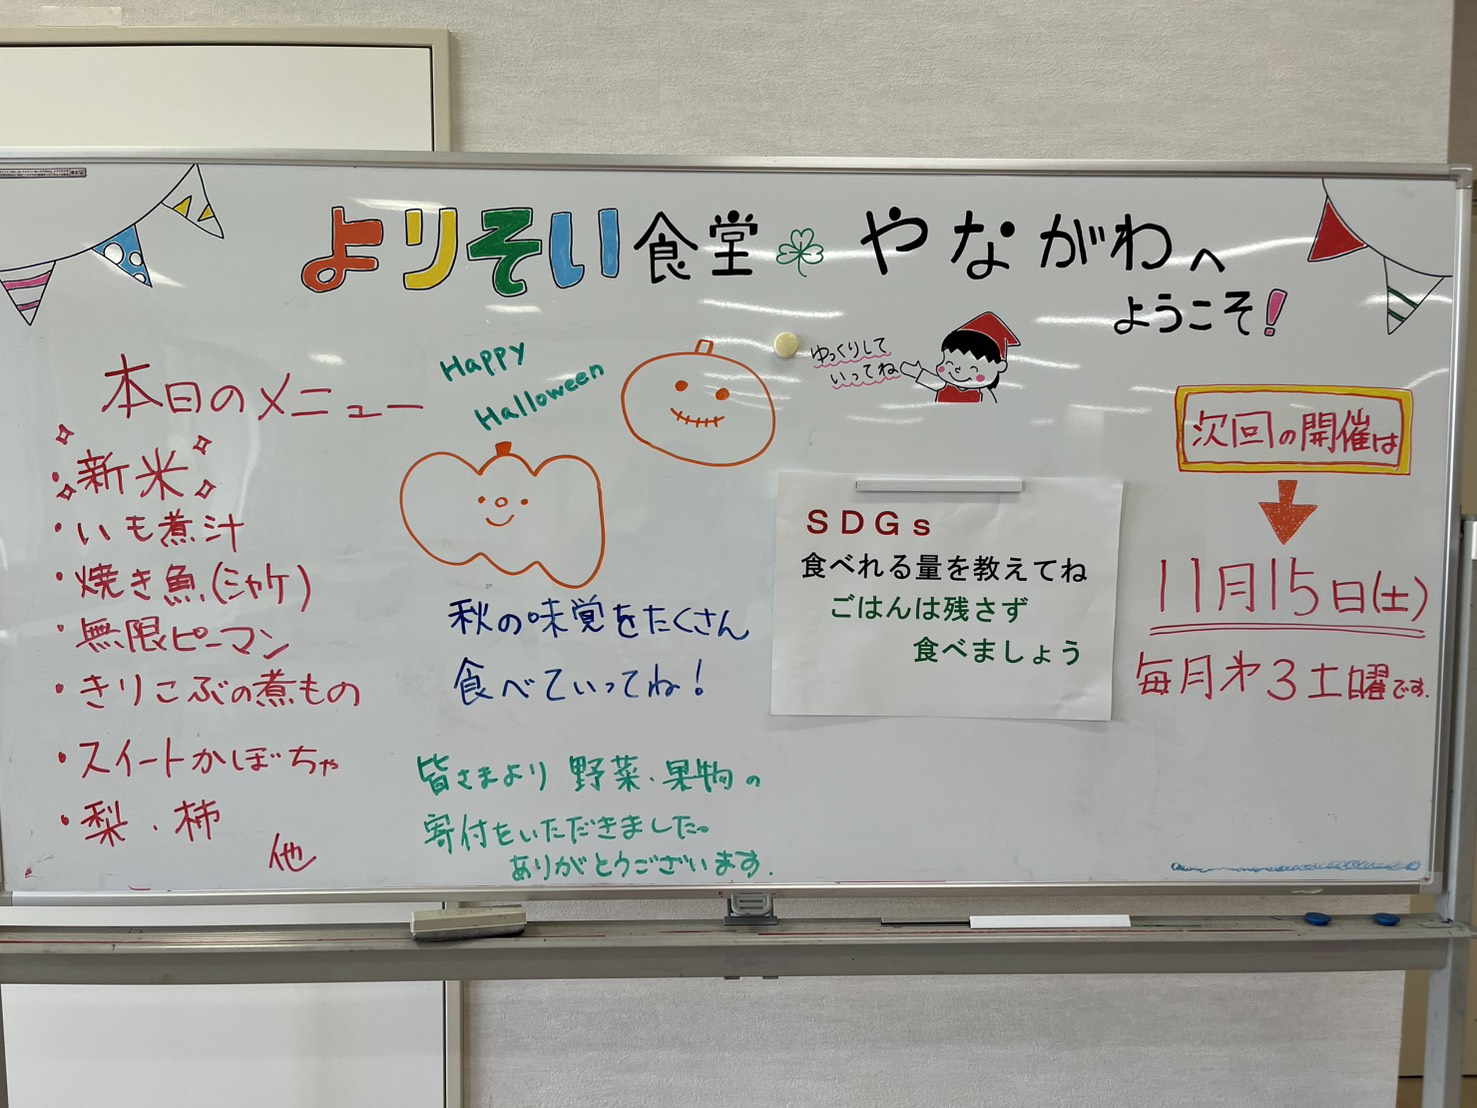 よりそい食堂 やながわへ
ようこそ!
ゆっくりして
いってね
Happy
Halloween
本日のメニュー
・新米
・いも煮汁
・焼き魚(シャケ)
・無限ピーマン
・きりこぶの煮もの
・スイートかぼちゃ
・梨・柿
他
秋の味覚をたくさん
食べていってね!
皆さまより野菜・果物の
寄付をいただきました。
ありがとうございます.
SDGs
食べれる量を教えてね
ごはんは残さず
食べましょう
次回の開催は
11月15日(土)
毎月㐧3土曜です.